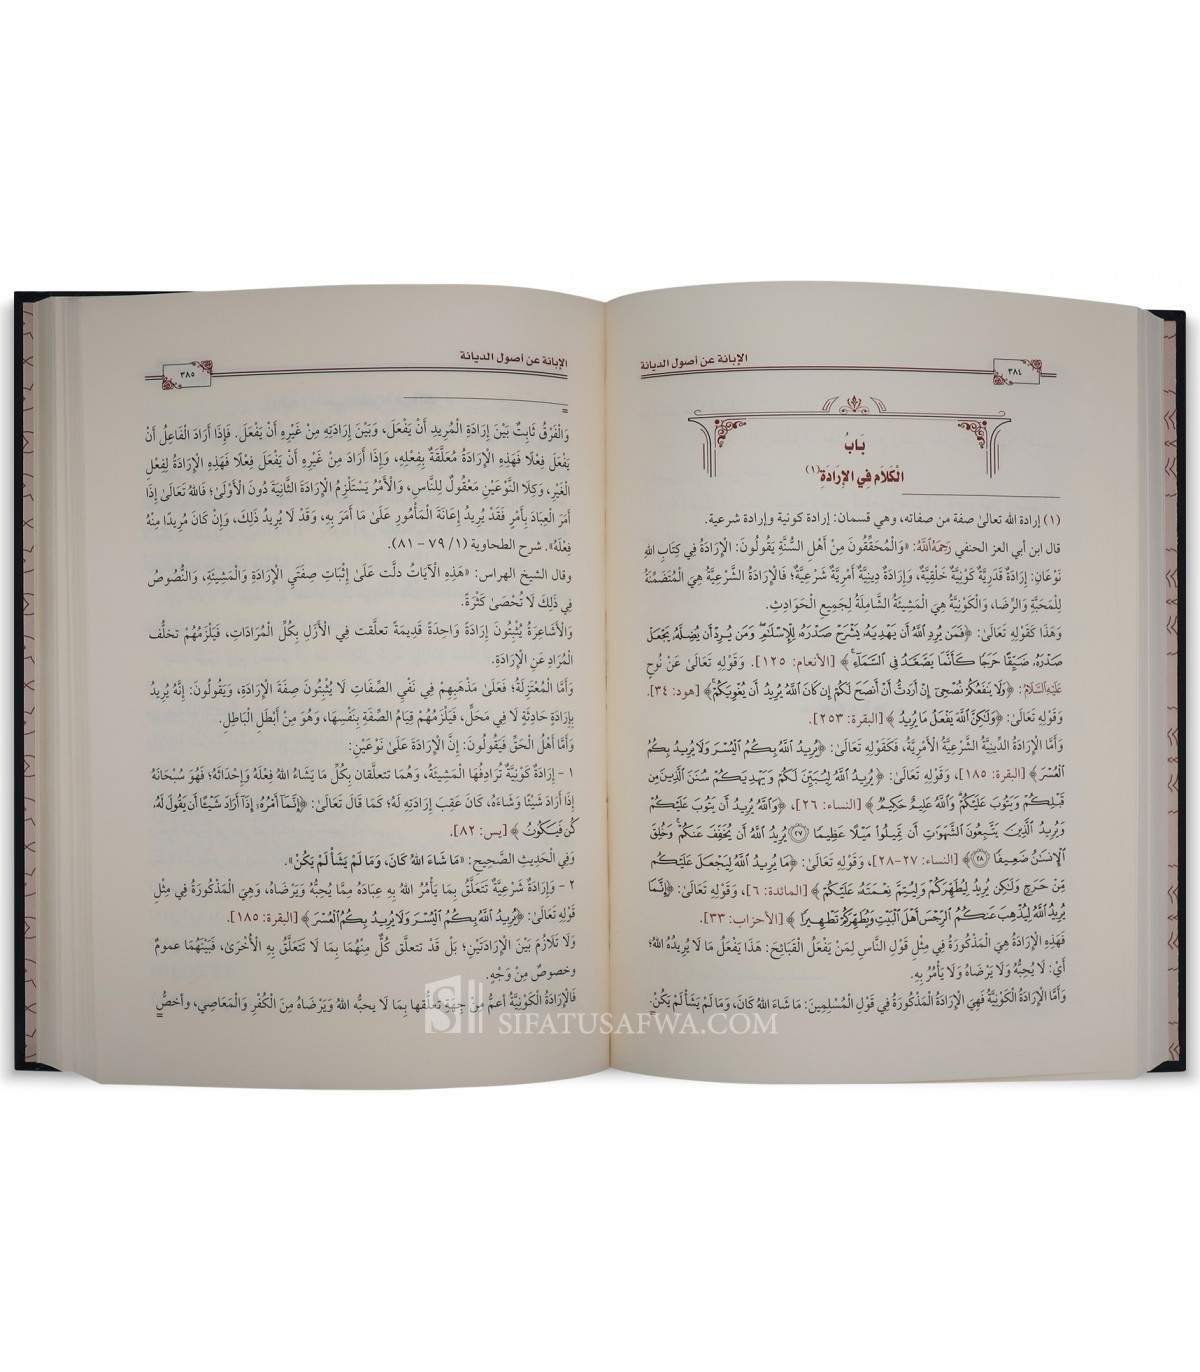 الإبانة عن أصول الديانة
٣٨٤
بَابُ
الْكَلَامِ فِي الإِرَادَةِ (١)
(١) إرادة الله تعالىٰ صفة من صفاته، وهي قسمان: إرادة كونية وإرادة شرعية.
قال ابن أبي العز الحنفي رَحِمَهُ اللَّهُ: «وَالْمُحَقِّقُونَ مِنْ أَهْلِ السُّنَّةِ يَقُولُونَ: الْإِرَادَةُ فِي كِتَابِ اللهِ
نَوْعَانِ: إِرَادَةٌ قَدَرِيَّةٌ كَوْنِيَّةٌ خَلْقِيَّةٌ، وَإِرَادَةٌ دِينِيَّةٌ أَمْرِيَّةٌ شَرْعِيَّةٌ؛ فَالْإِرَادَةُ الشَّرْعِيَّةُ هِيَ الْمُتَضَمِّنَةُ
لِلْمَحَبَّةِ وَالرِّضَا، وَالْكَوْنِيَّةُ هِيَ الْمَشِيئَةُ الشَّامِلَةُ لِجَمِيعِ الْحَوَادِثِ.
وَهَذَا كَقَوْلِهِ تَعَالَىٰ: ﴿فَمَن يُرِدِ اللَّهُ أَن يَهْدِيَهُ يَشْرَحْ صَدْرَهُ لِلْإِسْلَامِ وَمَن يُرِدْ أَن يُضِلَّهُ يَجْعَلْ
صَدْرَهُ ضَيِّقًا حَرَجًا كَأَنَّمَا يَصَّعَّدُ فِي السَّمَاءِ﴾ [الأنعام: ١٢٥]. وَقَوْلِهِ تَعَالَىٰ عَنْ نُوحٍ
عَلَيْهِ السَّلَامُ: ﴿وَلَا يَنفَعُكُمْ نُصْحِي إِنْ أَرَدتُّ أَنْ أَنصَحَ لَكُمْ إِن كَانَ اللَّهُ يُرِيدُ أَن يُغْوِيَكُمْ﴾ [هود: ٣٤].
وَقَوْلِهِ تَعَالَىٰ: ﴿وَلَٰكِنَّ اللَّهَ يَفْعَلُ مَا يُرِيدُ﴾ [البقرة: ٢٥٣].
وَأَمَّا الْإِرَادَةُ الدِّينِيَّةُ الشَّرْعِيَّةُ الْأَمْرِيَّةُ، فَكَقَوْلِهِ تَعَالَىٰ: ﴿يُرِيدُ اللَّهُ بِكُمُ الْيُسْرَ وَلَا يُرِيدُ بِكُمُ
الْعُسْرَ﴾ [البقرة: ١٨٥]، وَقَوْلِهِ تَعَالَىٰ: ﴿يُرِيدُ اللَّهُ لِيُبَيِّنَ لَكُمْ وَيَهْدِيَكُمْ سُنَنَ الَّذِينَ مِن
قَبْلِكُمْ وَيَتُوبَ عَلَيْكُمْ وَاللَّهُ عَلِيمٌ حَكِيمٌ﴾ [النساء: ٢٦]، ﴿وَاللَّهُ يُرِيدُ أَن يَتُوبَ عَلَيْكُمْ
وَيُرِيدُ الَّذِينَ يَتَّبِعُونَ الشَّهَوَاتِ أَن تَمِيلُوا مَيْلًا عَظِيمًا ۝٢٧ يُرِيدُ اللَّهُ أَن يُخَفِّفَ عَنكُمْ وَخُلِقَ
الْإِنسَانُ ضَعِيفًا ۝٢٨﴾ [النساء: ٢٧-٢٨]، وَقَوْلِهِ تَعَالَىٰ: ﴿مَا يُرِيدُ اللَّهُ لِيَجْعَلَ عَلَيْكُم
مِّنْ حَرَجٍ وَلَٰكِن يُرِيدُ لِيُطَهِّرَكُمْ وَلِيُتِمَّ نِعْمَتَهُ عَلَيْكُمْ﴾ [المائدة: ٦]، وَقَوْلِهِ تَعَالَىٰ: ﴿إِنَّمَا
يُرِيدُ اللَّهُ لِيُذْهِبَ عَنكُمُ الرِّجْسَ أَهْلَ الْبَيْتِ وَيُطَهِّرَكُمْ تَطْهِيرًا﴾ [الأحزاب: ٣٣].
فَهَذِهِ الْإِرَادَةُ هِيَ الْمَذْكُورَةُ فِي مِثْلِ قَوْلِ النَّاسِ لِمَنْ يَفْعَلُ الْقَبَائِحَ: هَذَا يَفْعَلُ مَا لَا يُرِيدُهُ اللهُ؛
أَيْ: لَا يُحِبُّهُ وَلَا يَرْضَاهُ وَلَا يَأْمُرُ بِهِ.
وَأَمَّا الْإِرَادَةُ الْكَوْنِيَّةُ فَهِيَ الْإِرَادَةُ الْمَذْكُورَةُ فِي قَوْلِ الْمُسْلِمِينَ: مَا شَاءَ اللهُ كَانَ، وَمَا لَمْ يَشَأْ لَمْ يَكُنْ. =
الإبانة عن أصول الديانة
٣٨٥
=
وَالْفَرْقُ ثَابِتٌ بَيْنَ إِرَادَةِ الْمُرِيدِ أَنْ يَفْعَلَ، وَبَيْنَ إِرَادَتِهِ مِنْ غَيْرِهِ أَنْ يَفْعَلَ. فَإِذَا أَرَادَ الْفَاعِلُ أَنْ
يَفْعَلَ فِعْلًا فَهَذِهِ الْإِرَادَةُ مُعَلَّقَةٌ بِفِعْلِهِ، وَإِذَا أَرَادَ مِنْ غَيْرِهِ أَنْ يَفْعَلَ فِعْلًا فَهَذِهِ الْإِرَادَةُ لِفِعْلِ
الْغَيْرِ، وَكِلَا النَّوْعَيْنِ مَعْقُولٌ لِلنَّاسِ، وَالْأَمْرُ يَسْتَلْزِمُ الْإِرَادَةَ الثَّانِيَةَ دُونَ الْأُولَىٰ؛ فَاللهُ تَعَالَىٰ إِذَا
أَمَرَ الْعِبَادَ بِأَمْرٍ فَقَدْ يُرِيدُ إِعَانَةَ الْمَأْمُورِ عَلَىٰ مَا أَمَرَ بِهِ، وَقَدْ لَا يُرِيدُ ذَلِكَ، وَإِنْ كَانَ مُرِيدًا مِنْهُ
فِعْلَهُ». شرح الطحاوية (١/ ٧٩ - ٨١).
وقال الشيخ الهراس: «هَذِهِ الْآيَاتُ دلَّت عَلَىٰ إِثْبَاتِ صِفَتَيِ الْإِرَادَةِ وَالْمَشِيئَةِ، وَالنُّصُوصُ
فِي ذَلِكَ لَا تُحْصَىٰ كَثْرَةً.
وَالْأَشَاعِرَةُ يُثْبِتُونَ إِرَادَةً وَاحِدَةً قَدِيمَةً تعلَّقت فِي الْأَزَلِ بِكُلِّ الْمُرَادَاتِ، فَيَلْزَمُهُمْ تخلُّف
الْمُرَادِ عَنِ الْإِرَادَةِ.
وَأَمَّا الْمُعْتَزِلَةُ؛ فَعَلَىٰ مَذْهَبِهِمْ فِي نَفْيِ الصِّفَاتِ لَا يُثْبِتُونَ صِفَةَ الْإِرَادَةِ، وَيَقُولُونَ: إِنَّهُ يُرِيدُ
بِإِرَادَةٍ حَادِثَةٍ لَا فِي مَحَلٍّ، فَيَلْزَمُهُمْ قِيَامُ الصِّفَةِ بِنَفْسِهَا، وَهُوَ مِنْ أَبْطَلِ الْبَاطِلِ.
وَأَمَّا أَهْلُ الْحَقِّ فَيَقُولُونَ: إِنَّ الْإِرَادَةَ عَلَىٰ نَوْعَيْنِ:
١ - إِرَادَةٌ كَوْنِيَّةٌ تُرَادِفُهَا الْمَشِيئَةُ، وَهُمَا تتعلَّقان بِكُلِّ مَا يَشَاءُ اللهُ فِعْلَهُ وَإِحْدَاثَهُ؛ فَهُوَ سُبْحَانَهُ
إِذَا أَرَادَ شَيْئًا وَشَاءَهُ، كَانَ عَقِبَ إِرَادَتِهِ لَهُ؛ كَمَا قَالَ تَعَالَىٰ: ﴿إِنَّمَا أَمْرُهُ إِذَا أَرَادَ شَيْئًا أَن يَقُولَ لَهُ
كُن فَيَكُونُ﴾ [يس: ٨٢].
وَفِي الْحَدِيثِ الصَّحِيحِ: «مَا شَاءَ اللهُ كَانَ، وَمَا لَمْ يَشَأْ لَمْ يَكُنْ».
٢ - وَإِرَادَةٌ شَرْعِيَّةٌ تَتَعَلَّقُ بِمَا يَأْمُرُ اللهُ بِهِ عِبَادَهُ مِمَّا يُحِبُّهُ وَيَرْضَاهُ، وَهِيَ الْمَذْكُورَةُ فِي مِثْلِ
قَوْلِهِ تَعَالَىٰ: ﴿يُرِيدُ اللَّهُ بِكُمُ الْيُسْرَ وَلَا يُرِيدُ بِكُمُ الْعُسْرَ﴾ [البقرة: ١٨٥].
وَلَا تَلَازُمَ بَيْنَ الْإِرَادَتَيْنِ؛ بَلْ قَدْ تتعلَّق كُلٌّ مِنْهُمَا بِمَا لَا تَتَعَلَّقُ بِهِ الْأُخْرَىٰ، فَبَيْنَهُمَا عمومٌ
وخصوصٌ مِنْ وَجْهٍ.
فَالْإِرَادَةُ الْكَوْنِيَّةُ أعمُّ مِنْ جِهَةِ تعلُّقها بِمَا لَا يحبُّه اللهُ وَيَرْضَاهُ مِنَ الْكُفْرِ وَالْمَعَاصِي، وأخصُّ =
SIFATUSAFWA.COM